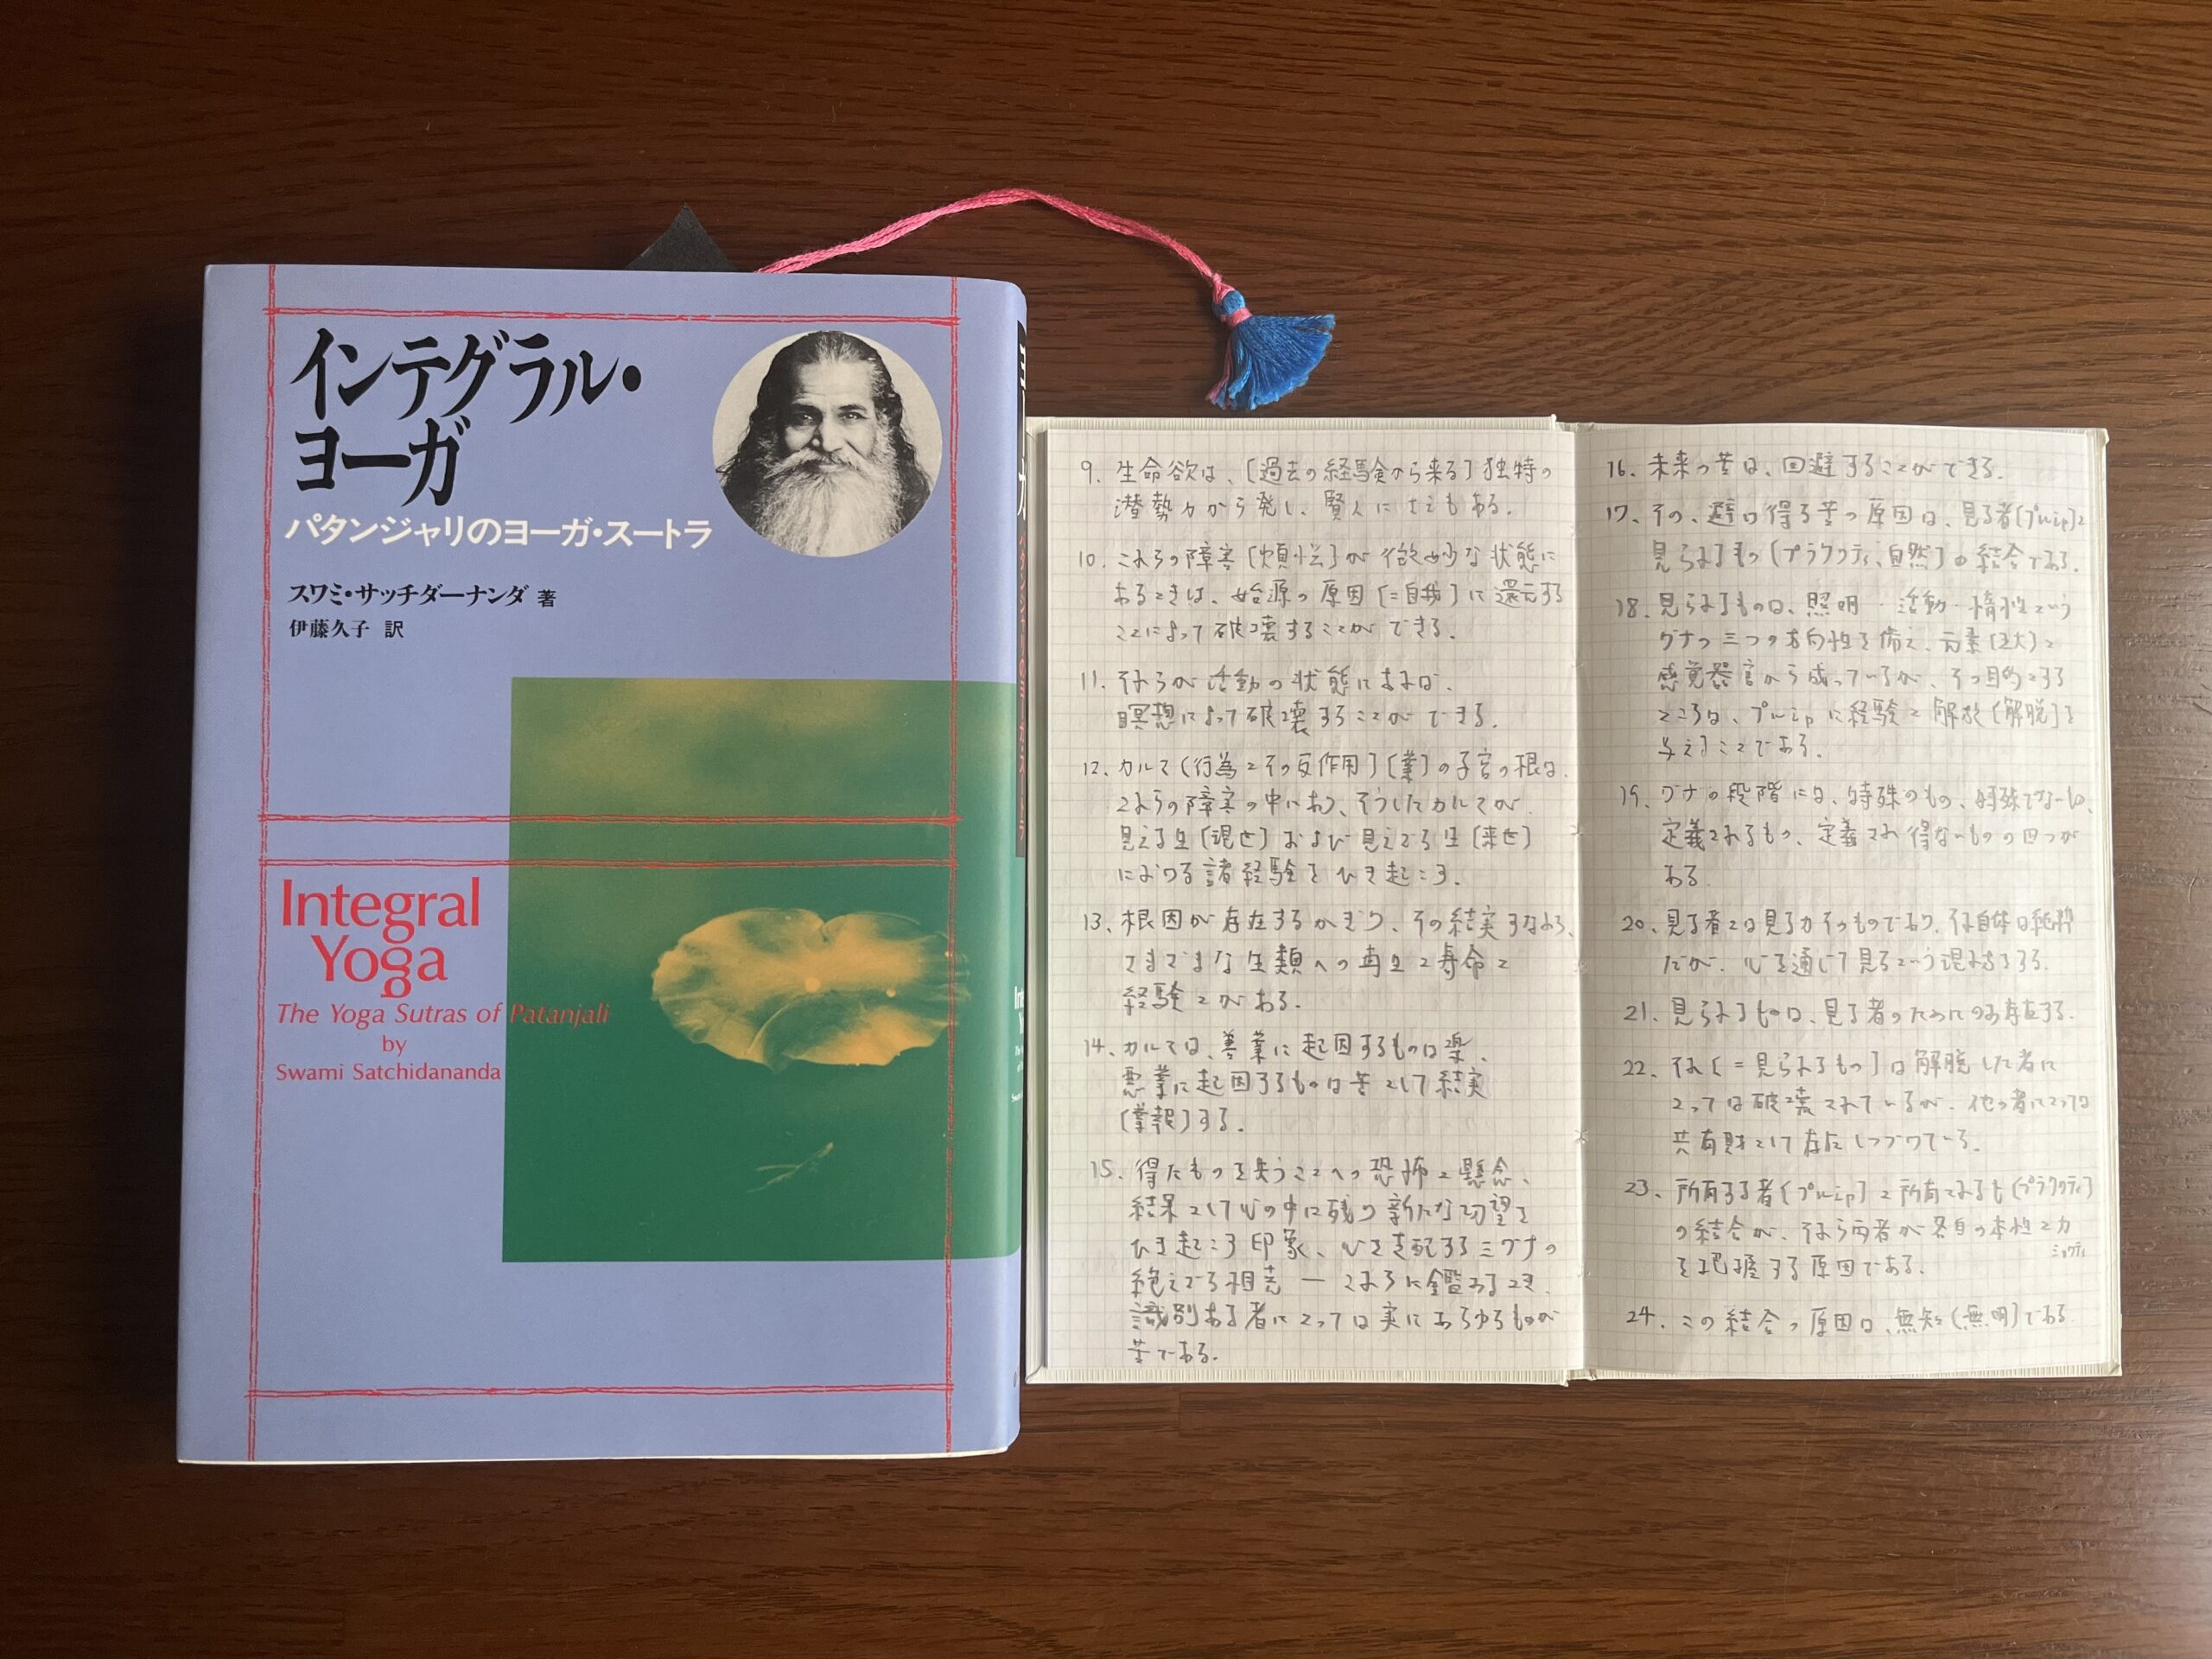 インテグラル・
ヨーガ
パタンジャリのヨーガ・スートラ
スワミ・サッチダーナンダ 著
伊藤久子 訳
Integral
Yoga
The Yoga Sutras of Patanjali
by
Swami Satchidananda
9. 生命欲は、[過去の経験から来る]独特の
潜勢力から発し、賢人にさえもある。
10. これらの障害[煩悩]が微妙な状態に
あるときは、始源の原因[=自我]に還元する
ことによって破壊することができる。
11. それらが活動の状態にあれば、
瞑想によって破壊することができる。
12. カルマ(行為とその反作用)[業]の子宮の根は、
これらの障害の中にあり、そうしたカルマが、
見える生[現世]および見えざる生[来世]
における諸経験をひき起こす。
13. 根因が存在するかぎり、その結実すなわち、
さまざまな生類への再生と寿命と
経験とがある。
14. カルマは、善業に起因するものは楽、
悪業に起因するものは苦として結実
[業報]する。
15. 得たものを失うことへの恐怖と懸念、
結果として心の中に残り新たな切望を
ひき起こす印象、心を支配する三グナの
絶えざる相克 — これらに鑑みるとき、
識別ある者にとっては実にあらゆるものが
苦である。
16. 未来の苦は、回避することができる。
17. その、避け得る苦の原因は、見る者[プルシャ]と
見られるもの[プラクリティ、自然]の結合である。
18. 見られるものは、照明・活動・惰性という
グナの三つの方向性を備え、元素[五大]と
感覚器官から成っているが、その目的とする
ところは、プルシャに経験と解放[解脱]を
与えることである。
19. グナの段階には、特殊のもの、特殊でないもの、
定義されるもの、定義され得ないものの四つが
ある。
20. 見る者とは見る力そのものであり、それ自体は純粋
だが、心を通じて見るという現れ方をする。
21. 見られるものは、見る者のためにのみ存在する。
22. それ[=見られるもの]は解脱した者に
とっては破壊されているが、他の者にとっては
共有財として存在しつづけている。
23. 所有する者[プルシャ]と所有されるもの[プラクリティ]
の結合が、それら両者が各自の本性と力
シャクティ
を把握する原因である。
24. この結合の原因は、無知[無明]である。